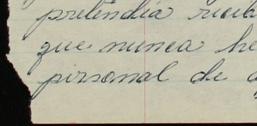 pretendia recib
que nunca he
pirsonal de a